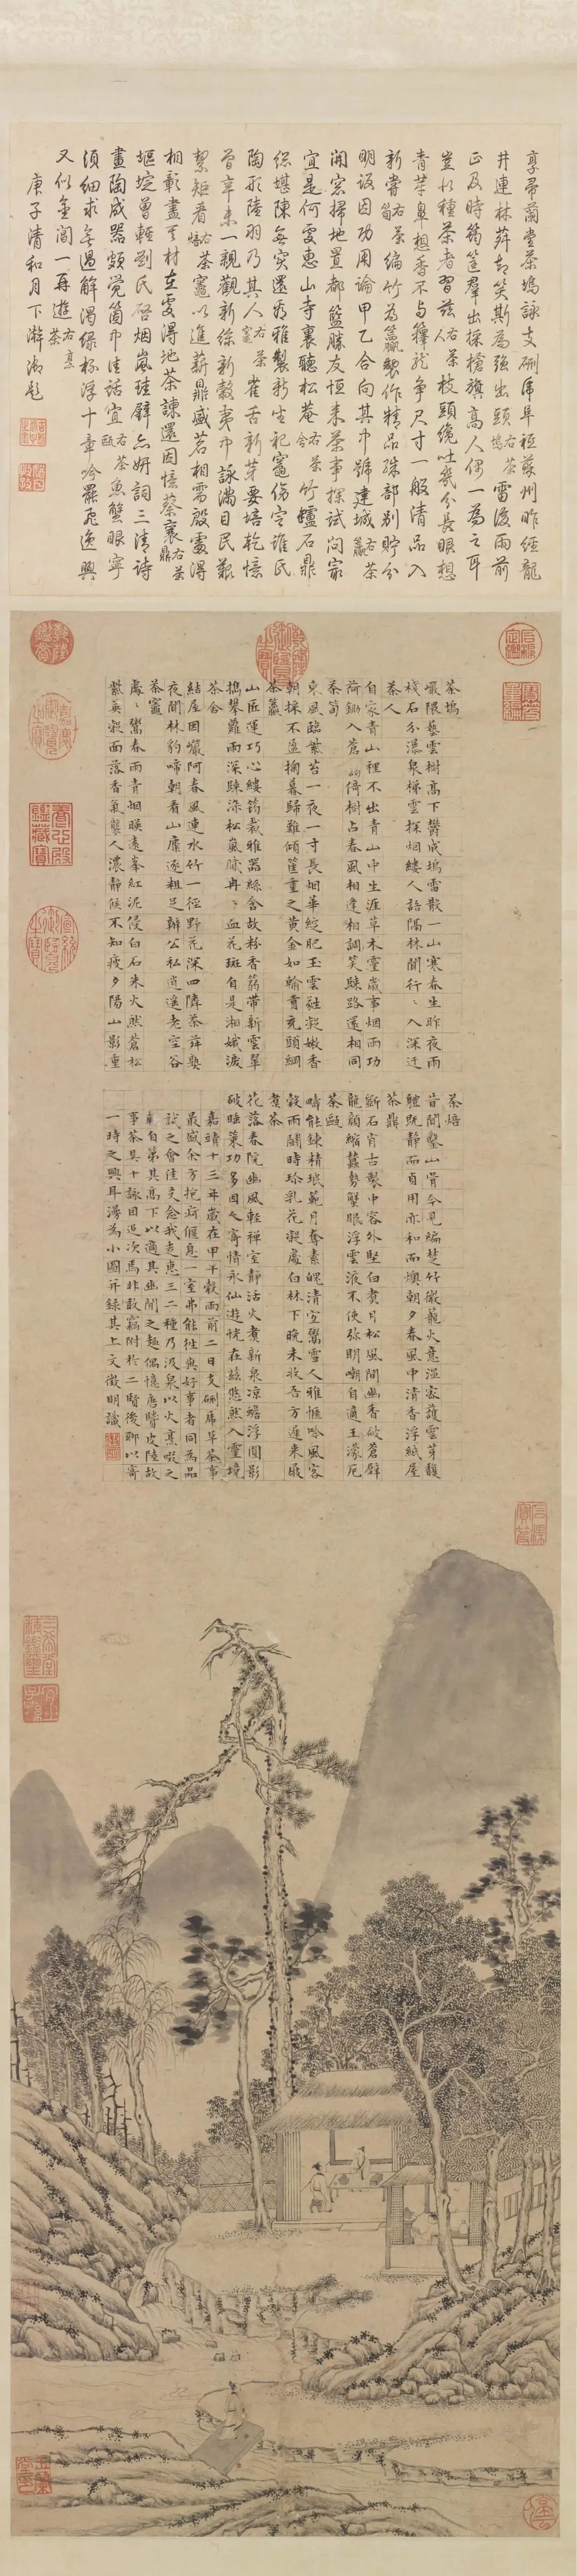 享帚蘭堂茶塢詠支硎虎阜裋蘇州昨經龍
井連林荈却笑斯為強出頭 右茶塢 雷後雨前
正及時筠筐羣出採槍旗高人偶一為之耳
豈似種茶者習茲 右茶人 枝頭纔吐幾分長眼想
青芽鼻想香不與籜龍爭尺寸一般清品入
新嘗 右茶筍 編竹為籯製作精品殊部別貯分
明設因功用論甲乙合向其中號建城 右茶籯
開窓掃地置都籃勝友恒来茶事探試問家
宜是何處惠山寺裏聽松菴 右茶舍 竹罏石鼎
總堪陳無突還看雅製新生祀竈傷定誰氏
陶形陸羽乃其人 右茶竈 雀舌新芽要焙乾憶
曾辛未一親觀新絲新穀夷中詠滿目民艱
絜矩看 右茶焙 茶竈以進薪鼎盛茗相需殷處得
相彰盡美材在處得地茶諫還因憶蔡襄 右茶鼎
摳埞曾輕劉氏居烟嵐珪璧六妍詞三清詩
畫陶成器頗覺箇中佳話宜 右茶甌 魚蟹眼寧
須細求無過解渴綠杯浮十章吟罷飛逸興
又似金閶一再遊 右烹茶
庚子清和月下澣御題
茶塢
巖隈藝雲樹高下鬱成塢雷散一山寒春生昨夜雨
棧石分瀑泉梯雲探烟縷人語隔林聞行〻入深迂
茶人
自家青山裡不出青山中生涯草木靈歲事烟雨功
荷鋤入蒼靄倚樹占春風相逢相調笑歸路還相同
茶筍
東風臨紫苔一夜一寸長烟華綻肥玉雲蕤凝嫩香
朝採不盈掬暮歸難傾筐重之黃金如輸貢充頭綱
茶籯
山匠運巧心縷筠裁雅器絲含故粉香篛帶新雲翠
攜攀蘿雨深歸染松嵐膩冉〻血花斑自是湘娥淚
茶舍
結屋因巖阿春風連水竹一徑野花深四隣茶荈熟
夜聞林豹啼朝看山麋逐粗足辦公私逍遙老空谷
茶竈
處〻鬻春雨青烟映遠峯紅泥侵白石朱火然蒼松
紫英凝面落香氣襲人濃靜候不知疲夕陽山影重
茶焙
昔聞鑿山骨今見編楚竹微籠火意溫密護雲芽馥
體既靜而貞用亦和而燠朝夕春風中清香浮紙屋
茶鼎
斵石肖古製中容外堅白煑月松風間幽香破蒼壁
龍顏縮蠢勢蟹眼浮雲液不使弥明嘲自適王濛厄
茶甌
疇能鍊精珉範月奪素魄清宜鬻雪人雅愜吟風客
穀雨鬭時珍乳花凝處白林下晚未收吾方遲來屐
煑茶
花落春院幽風輕禪室靜活火煑新泉凉蟾浮圓影
破睡策功多因人寄情永仙遊恍在茲悠然入靈境
嘉靖十三年歲在甲午穀雨前二日支硎虎阜茶事
最盛余方抱疴偃息一室弗能往與好事者同為品
試之會佳友念我走惠三二種乃汲泉以火烹啜之
輒自第其高下以適其幽閒之趣偶憶唐賢皮陸故
事茶具十詠因追次焉非敢竊附於二賢後聊以寄
一時之興耳漫為小圖并錄其上文徵明識